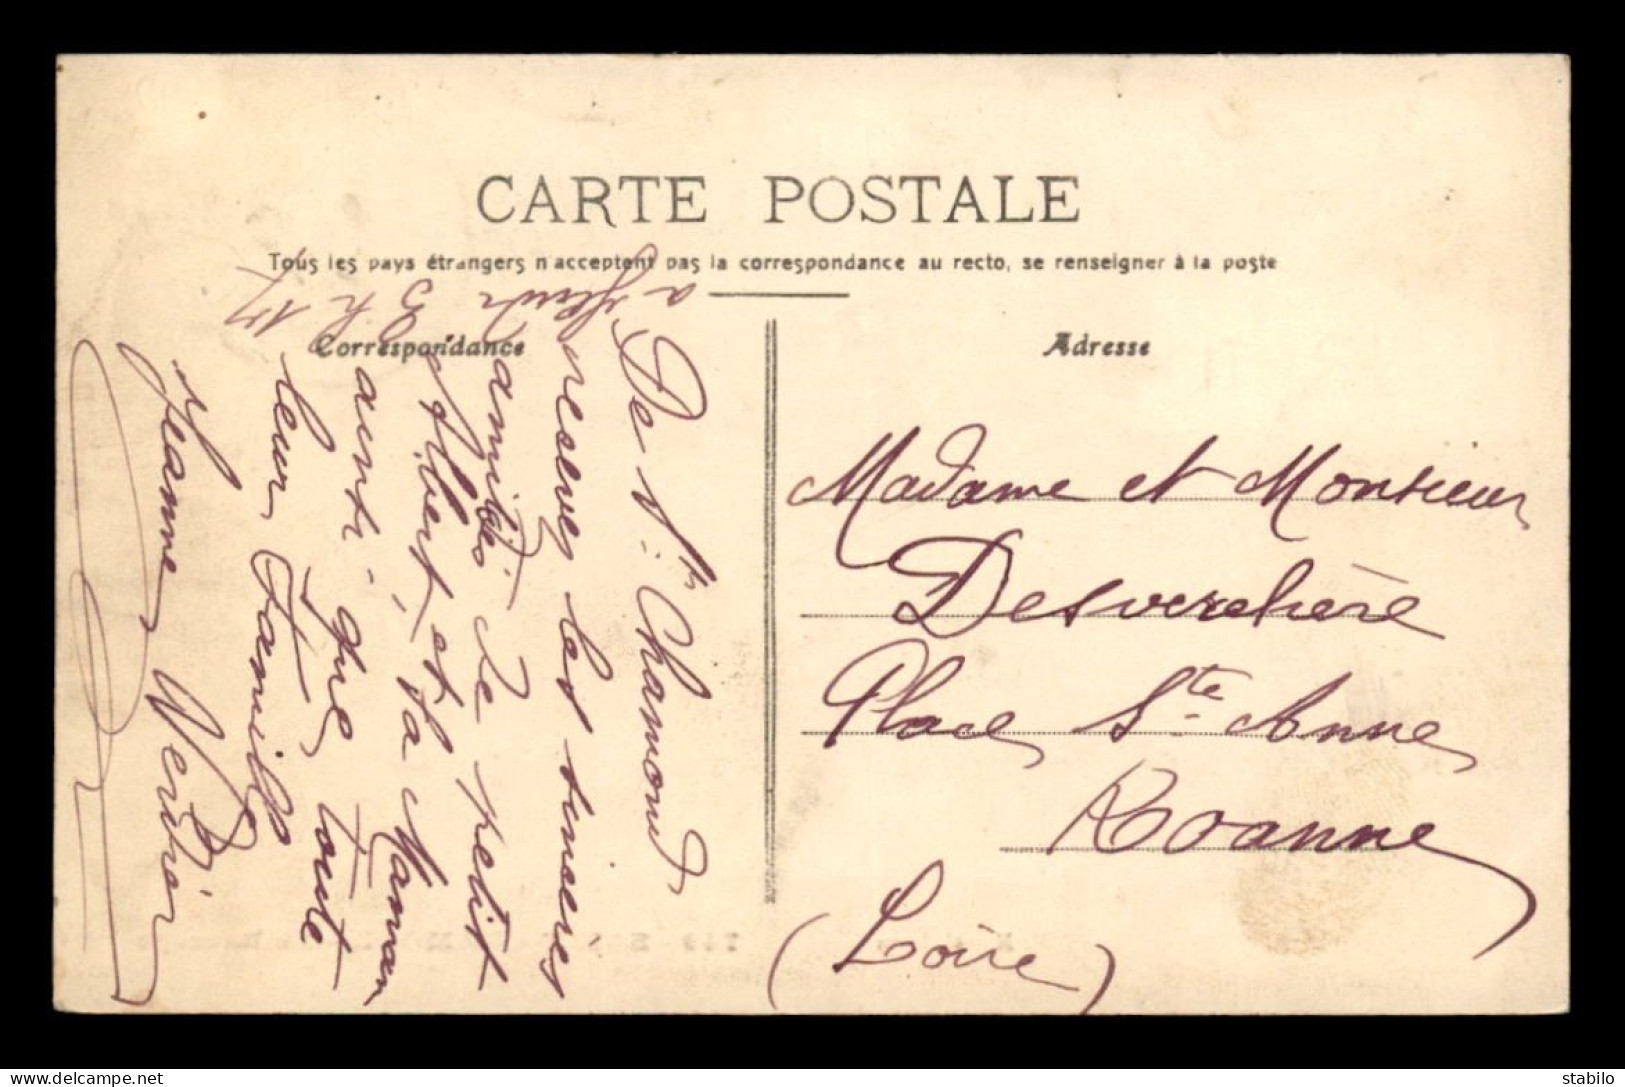 CARTE POSTALE
Tous les pays étrangers n'acceptent pas la correspondance au recto, se renseigner à la poste
Correspondance
Adresse
De St Chamond
recevez les sincères
amitiés de petit
Albert, et sa Maman
ainsi que toute
leur Famille
Jeanne
a
3 h 17
Madame et Monsieur
Desverchère
Place Ste Anne
Roanne
(Loire)
delcampe.net
stabilo